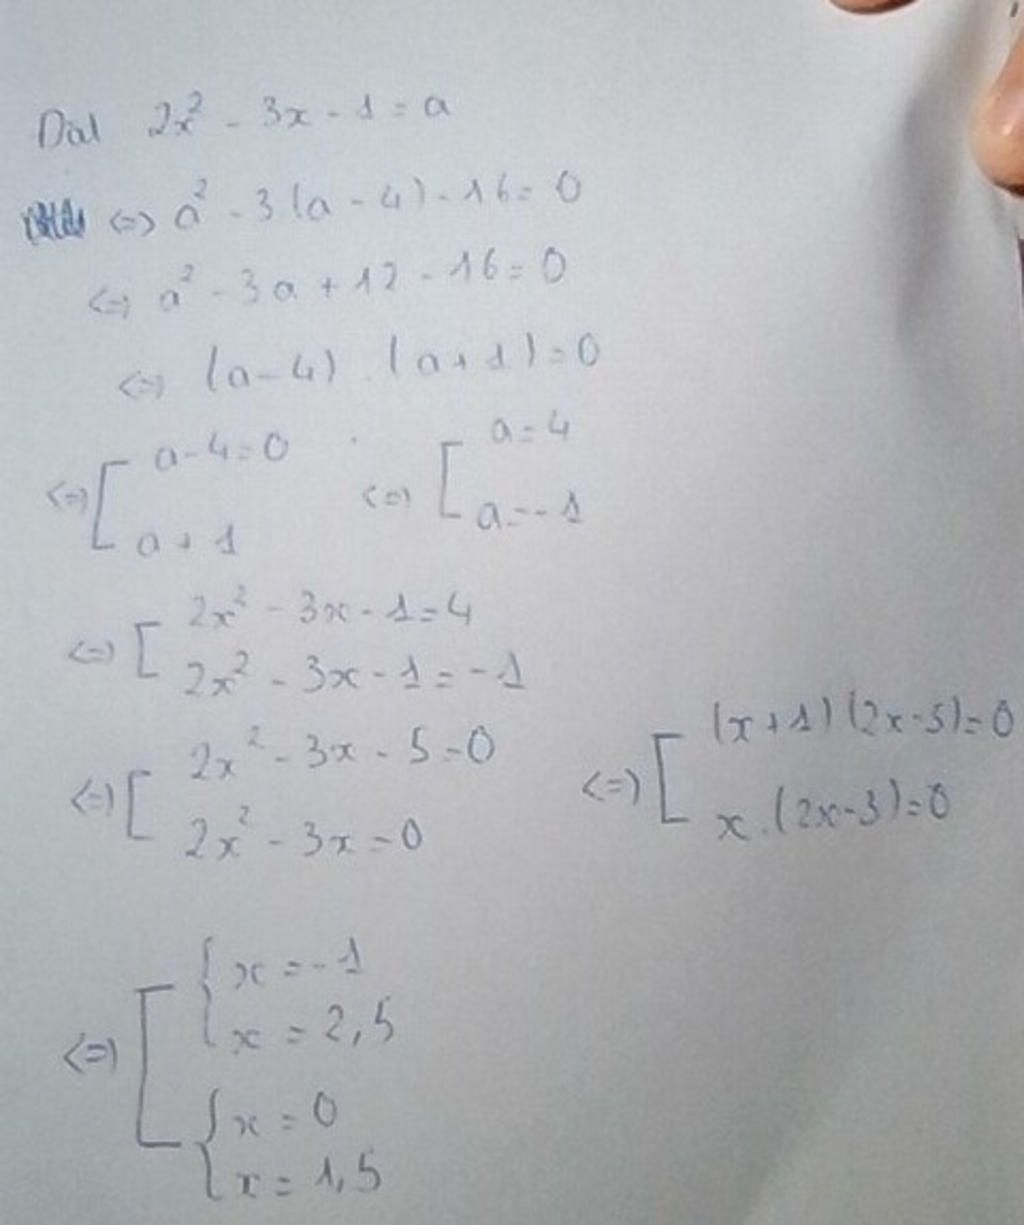 Đặt 2x² - 3x - 1 = a
<=> a² - 3(a - 4) - 16 = 0
<=> a² - 3a + 12 - 16 = 0
<=> (a - 4) . (a + 1) = 0
<=> [ a - 4 = 0 <=> [ a = 4
a + 1 a = -1
<=> [ 2x² - 3x - 1 = 4
2x² - 3x - 1 = -1
<=> [ 2x² - 3x - 5 = 0 <=> [ (x + 1)(2x - 5) = 0
2x² - 3x = 0 x . (2x - 3) = 0
<=> [ { x = -1
x = 2,5
{ x = 0
x = 1,5